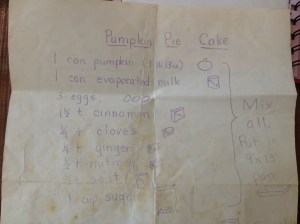 Pumpkin Pie Cake
1 can pumpkin
1 can evaporated milk
3 eggs
1½ t cinnamon
t cloves
t ginger
½ t nutmeg
salt
1 cup sugar
Mix
all
Put
9x13
pan